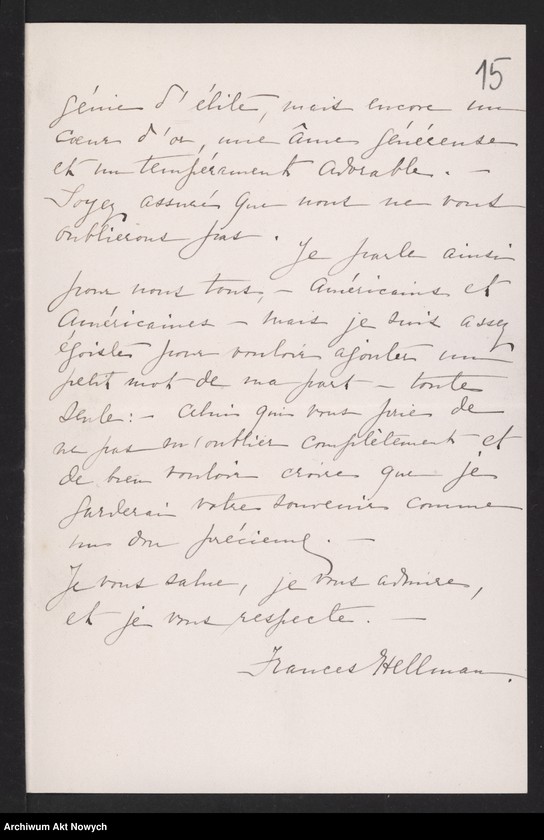 15
génie d'élite, mais encore un
cœur d'or, une âme généreuse
et un tempérament adorable. —
Soyez assuré que nous ne vous
oublierons pas. Je parle ainsi
pour nous tous, — Américains et
Américaines — mais je suis assez
égoiste pour vouloir ajouter un
petit mot de ma part — toute
seule: — Celui qui vous prie de
ne pas m'oublier complètement et
de bien vouloir croire que je
garderai votre souvenir comme
un don précieux. —
Je vous salue, je vous admire,
et je vous respecte. —
Frances Hellman.
Archiwum Akt Nowych